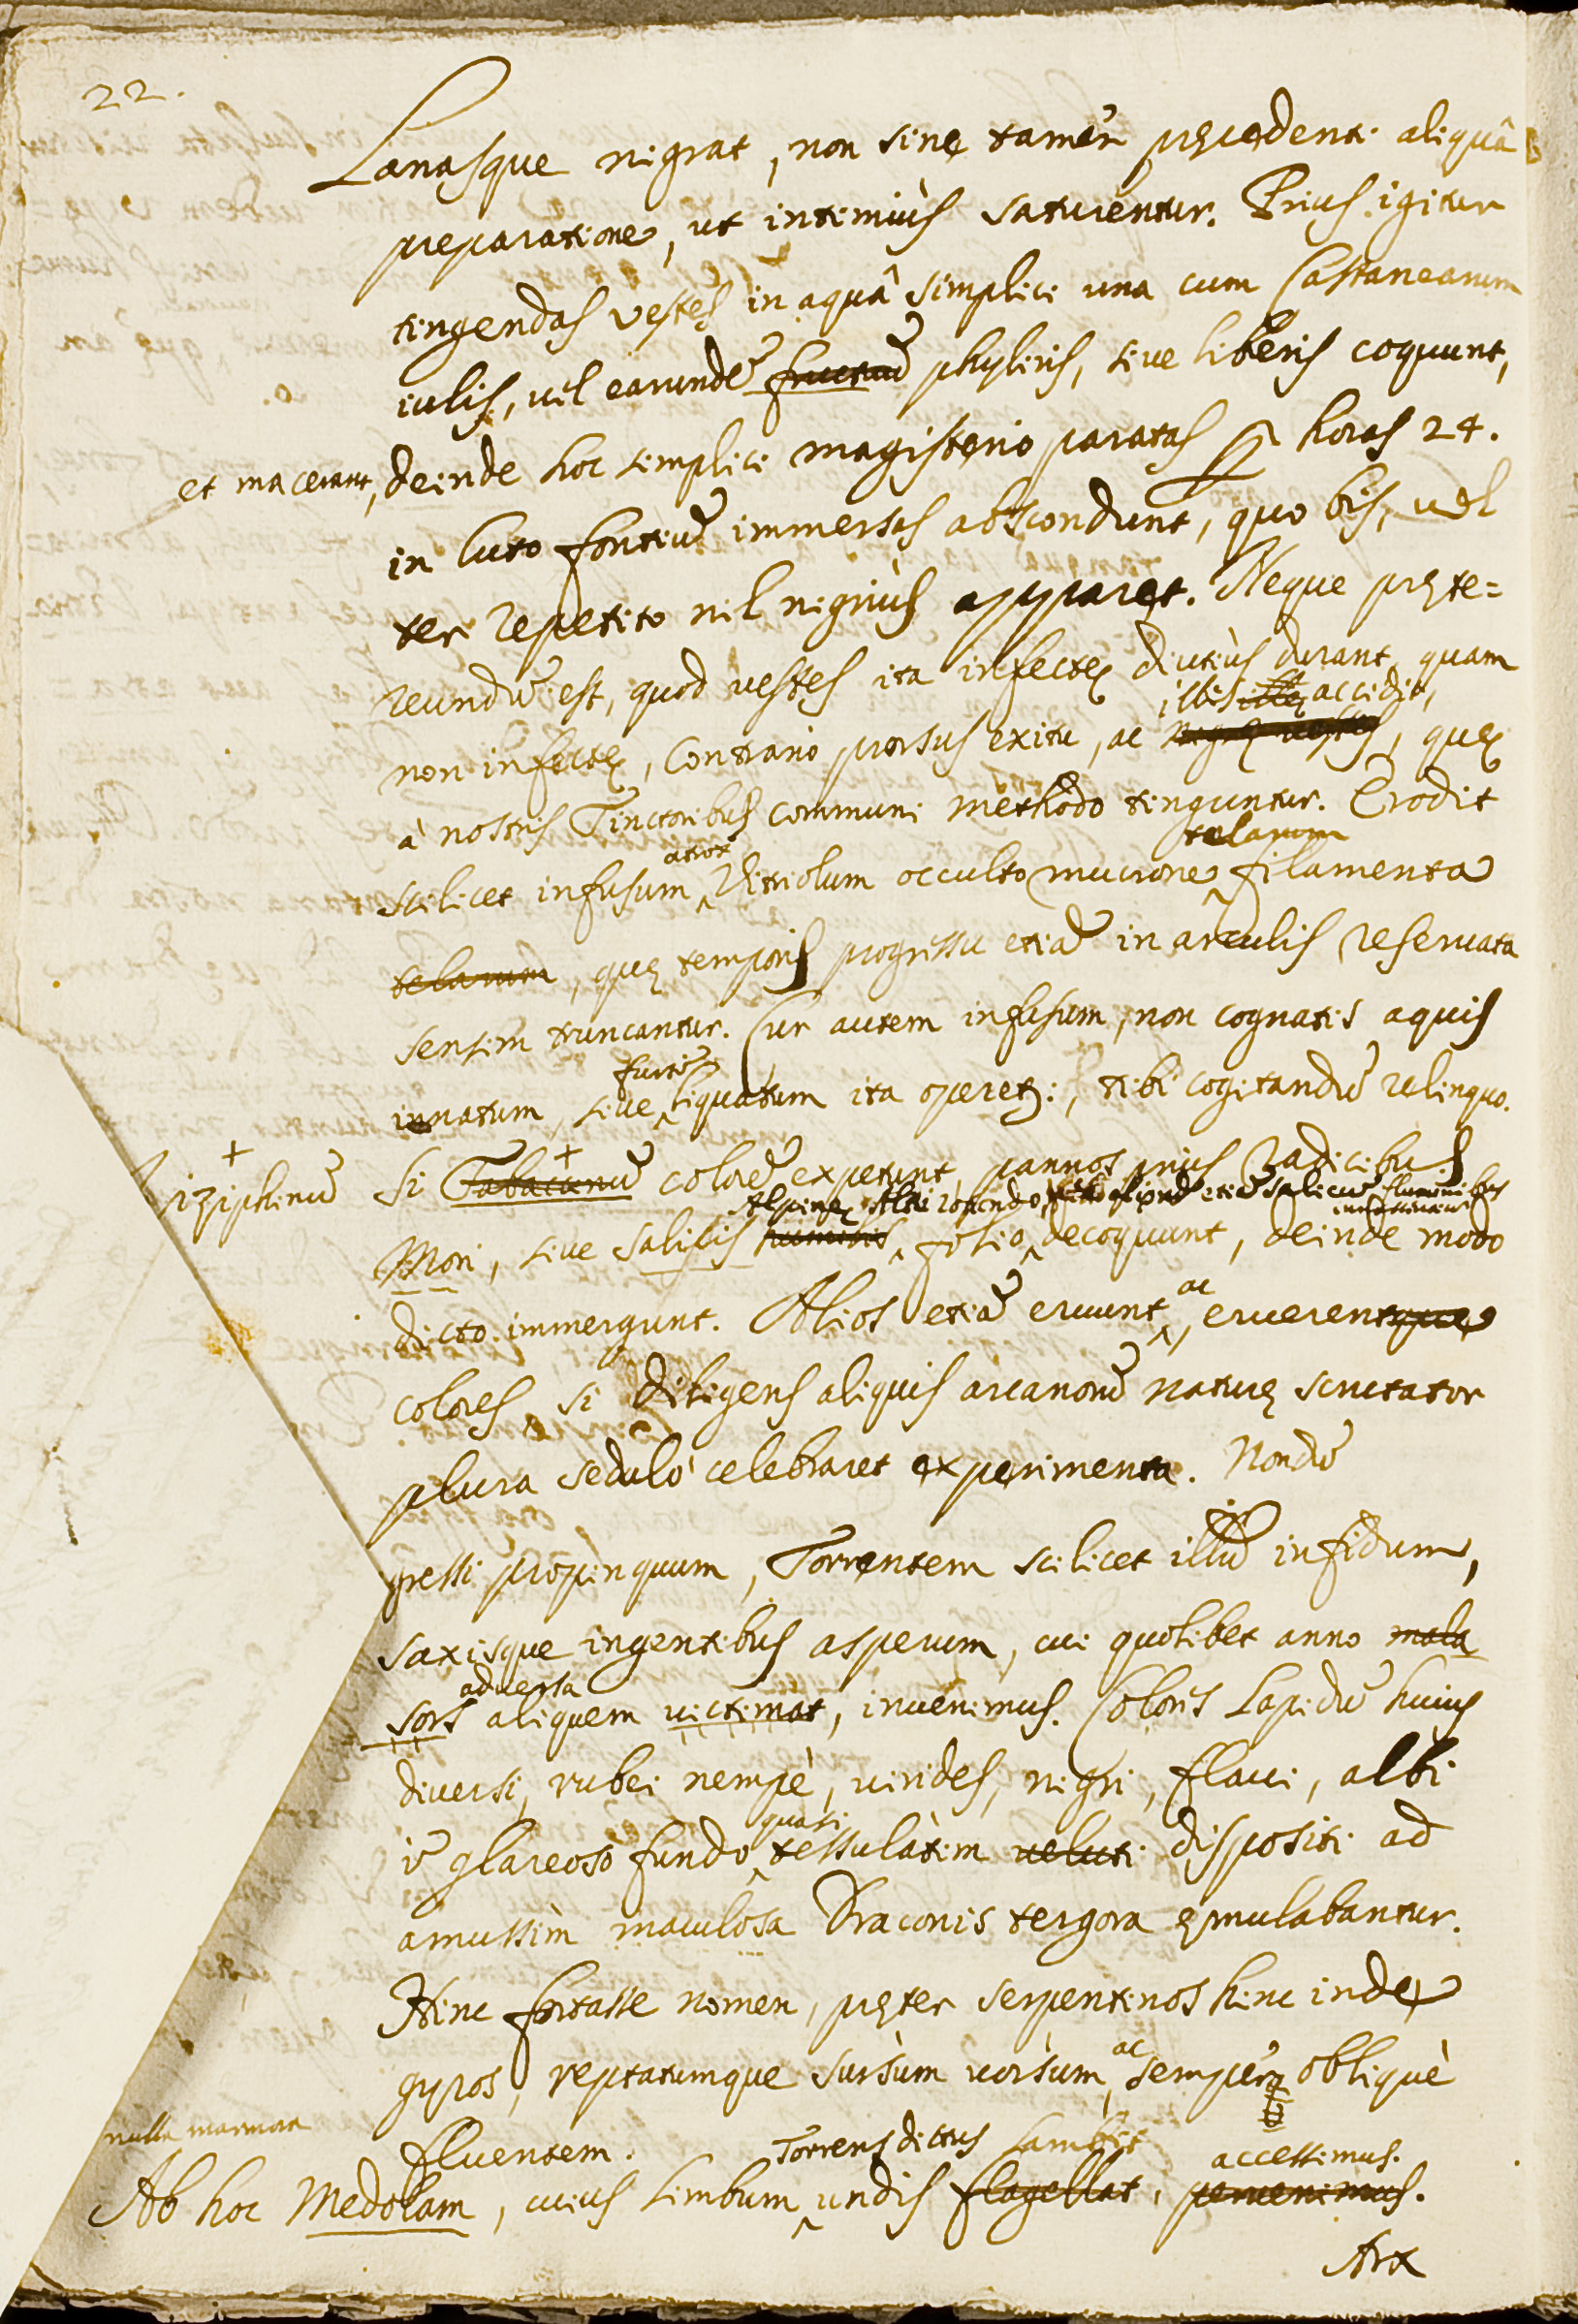 22.
Lanasque nigrat, non sine tamen pręcedenti aliquâ
preparatione, ut intimiùs saturentur. Prius igitur
tingendas vestes in aquâ simplici una cum Castanearum
iulis, vel earundē fructuū phyliris, sive liberis coquunt,
et macerant, deinde hoc simplici magisterio paratas ꝑ horas 24.
in luto fontiū immersas abscondunt, quo bis, vel
ter repetito nil nigriùs apparet. Neque pręte=
reundū est, quod vestes ita infectę diutiùs durant, quam
illis accidit,
non infectę, Contrario prorsus exitu, ac nigrę vestes, quę
à nostris Tinctoribus communi methodo tinguntur. Erodit
atrox telarum
scilicet infusum Vitriolum occulto mucrone filamenta
telarum, quę temporis progressu etiā in arculis reservata
sensim truncantur. Cur autem infusum, non cognatis aquis
furtim
innatum, sive liquatum ita operet:, tibi cogitandū relinquo.
Ziziphinū Si Tabacinū colorē expetunt, pannos prius Radicibus
Alpinę etiā salicū fluminibus
Mori, sive Salicis humilis folio decoquunt, deinde modo
ac
dicto immergunt. Alios etiā eruunt, eruerentque
colores, si diligens aliquis arcanorū naturę scrutator
plura sedulò celebraret experimenta. Nondū
gressi propinquum, Torrentem scilicet illū infidum,
saxisque ingentibus asperum, cui quolibet anno mala
adversa
sors aliquem victimat, invenimus. Coloris Lapidū huius
diversi, rubei nempè, virides, nigri, flavi, albi
quasi
ī glareoso fundo tessulàtim veluti dispositi ad
amussim maculosa Draconis tergora ęmulabantur.
Hinc fortasse nomen, pręter serpentinos hinc inde
ac
gyros, reptatumque sursùm vorsùm, semper obliquè
nulla
fluentem. Torrens dictus lambit accessimus.
Ab hoc Medolam, cuius limbum undis flagellat, pervenimus.
Arx